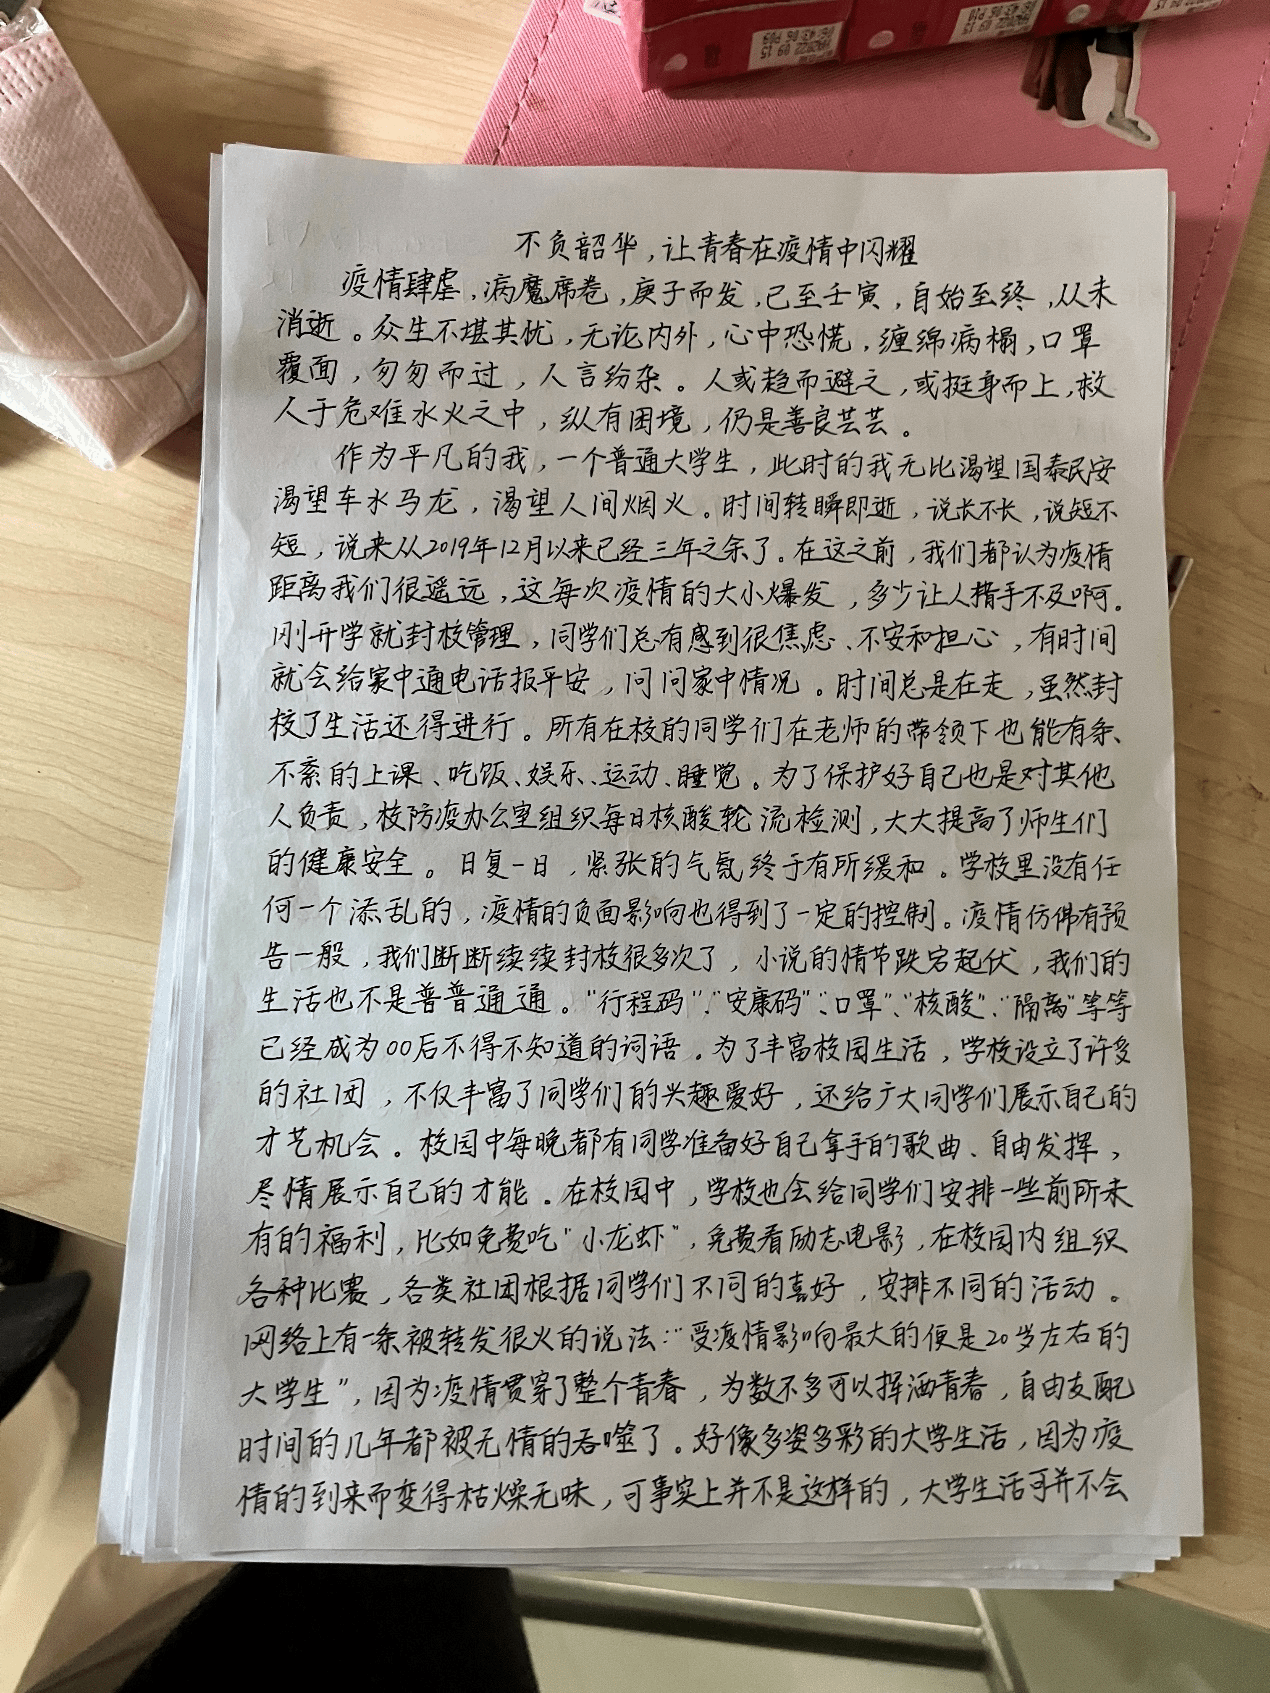 不负韶华，让青春在疫情中闪耀
疫情肆虐，病魔席卷，庚子而发，已至壬寅，自始至终，从未
消逝。众生不堪其忧，无论内外，心中恐慌，缠绵病榻，口罩
覆面，匆匆而过，人言纷杂。人或趋而避之，或挺身而上，救
人于危难水火之中，纵有困境，仍是善良芸芸。
作为平凡的我，一个普通大学生，此时的我无比渴望国泰民安
渴望车水马龙，渴望人间烟火。时间转瞬即逝，说长不长，说短不
短，说来从2019年12月以来已经三年之余了。在这之前，我们都认为疫情
距离我们很遥远，这每次疫情的大小爆发，多少让人措手不及啊。
刚开学就封校管理，同学们总有感到很焦虑、不安和担心，有时间
就会给家中通电话报平安，问问家中情况。时间总是在走，虽然封
校了生活还得进行。所有在校的同学们在老师的带领下也能有条、
不紊的上课、吃饭、娱乐、运动、睡觉。为了保护好自己也是对其他
人负责，校防疫办公室组织每日核酸轮流检测，大大提高了师生们
的健康安全。日复一日，紧张的气氛终于有所缓和。学校里没有任
何一个添乱的，疫情的负面影响也得到了一定的控制。疫情仿佛有预
告一般，我们断断续续封校很多次了，小说的情节跌宕起伏，我们的
生活也不是普普通通。“行程码”、“安康码”、“口罩”、“核酸”、“隔离”等等
已经成为00后不得不知道的词语。为了丰富校园生活，学校设立了许多
的社团，不仅丰富了同学们的兴趣爱好，还给广大同学们展示自己的
才艺机会。校园中每晚都有同学准备好自己拿手的歌曲、自由发挥，
尽情展示自己的才能。在校园中，学校也会给同学们安排一些前所未
有的福利，比如免费吃“小龙虾”，免费看励志电影，在校园内组织
各种比赛，各类社团根据同学们不同的喜好，安排不同的活动。
网络上有一条被转发很火的说法：“受疫情影响最大的便是20岁左右的
大学生”，因为疫情贯穿了整个青春，为数不多可以挥洒青春，自由支配
时间的几年都被无情的吞噬了。好像多姿多彩的大学生活，因为疫
情的到来而变得枯燥无味，可事实上并不是这样的，大学生活可并不会